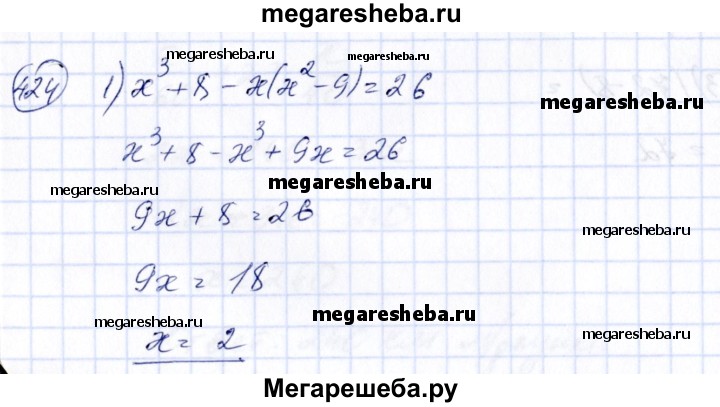 megaresheba.ru
megaresheba.ru megaresheba.ru
424 1) x³ + 8 - x(x² - 9) = 26
x³ + 8 - x³ + 9x = 26
megaresheba.ru megaresheba.ru
9x + 8 = 26
megaresheba.ru
9x = 18
megaresheba.ru
megaresheba.ru
x = 2
megaresheba.ru
Мегарешеба.ру